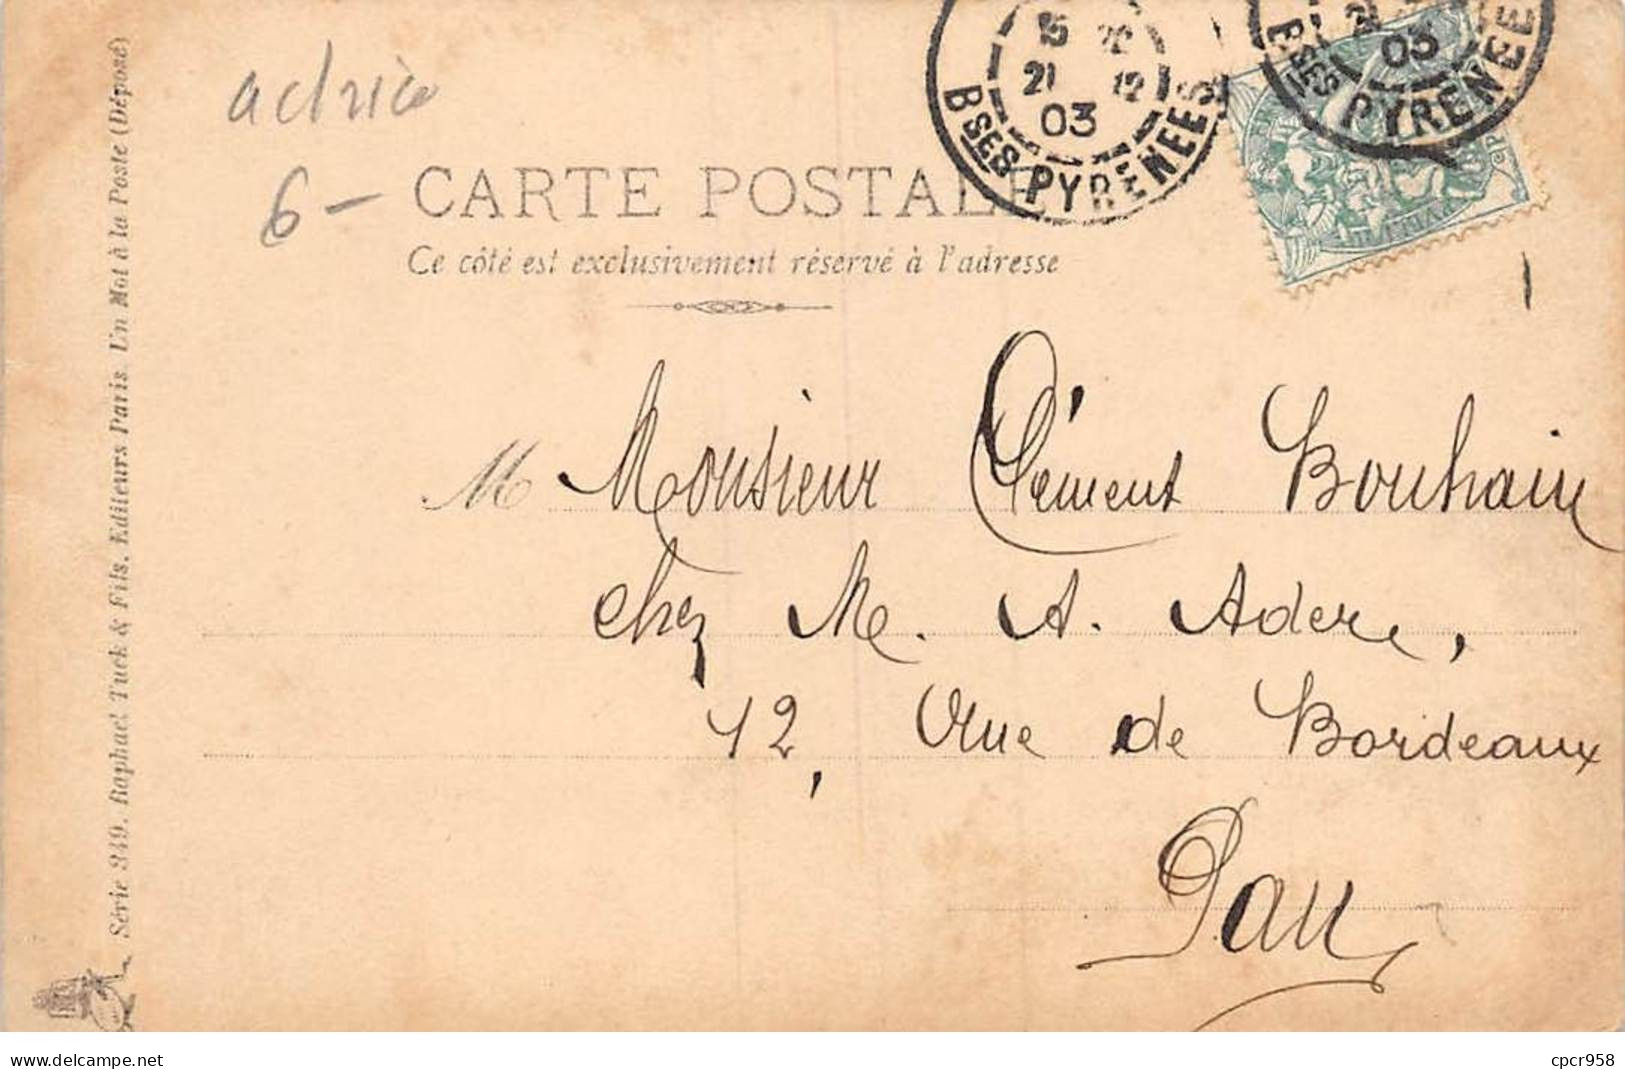 actrice
6 -
CARTE POSTALE
Ce côté est exclusivement réservé à l'adresse
15
21 12
03
BSES PYRENEES
03
BSES PYRENEE
M Monsieur Clément Bouhain
chez M. A. Adere,
12, Rue de Bordeaux
Pau
Série 349. Raphael Tuck & Fils, Editeurs Paris. Un Mot à la Poste (Déposé)
www.delcampe.net
cpcr958